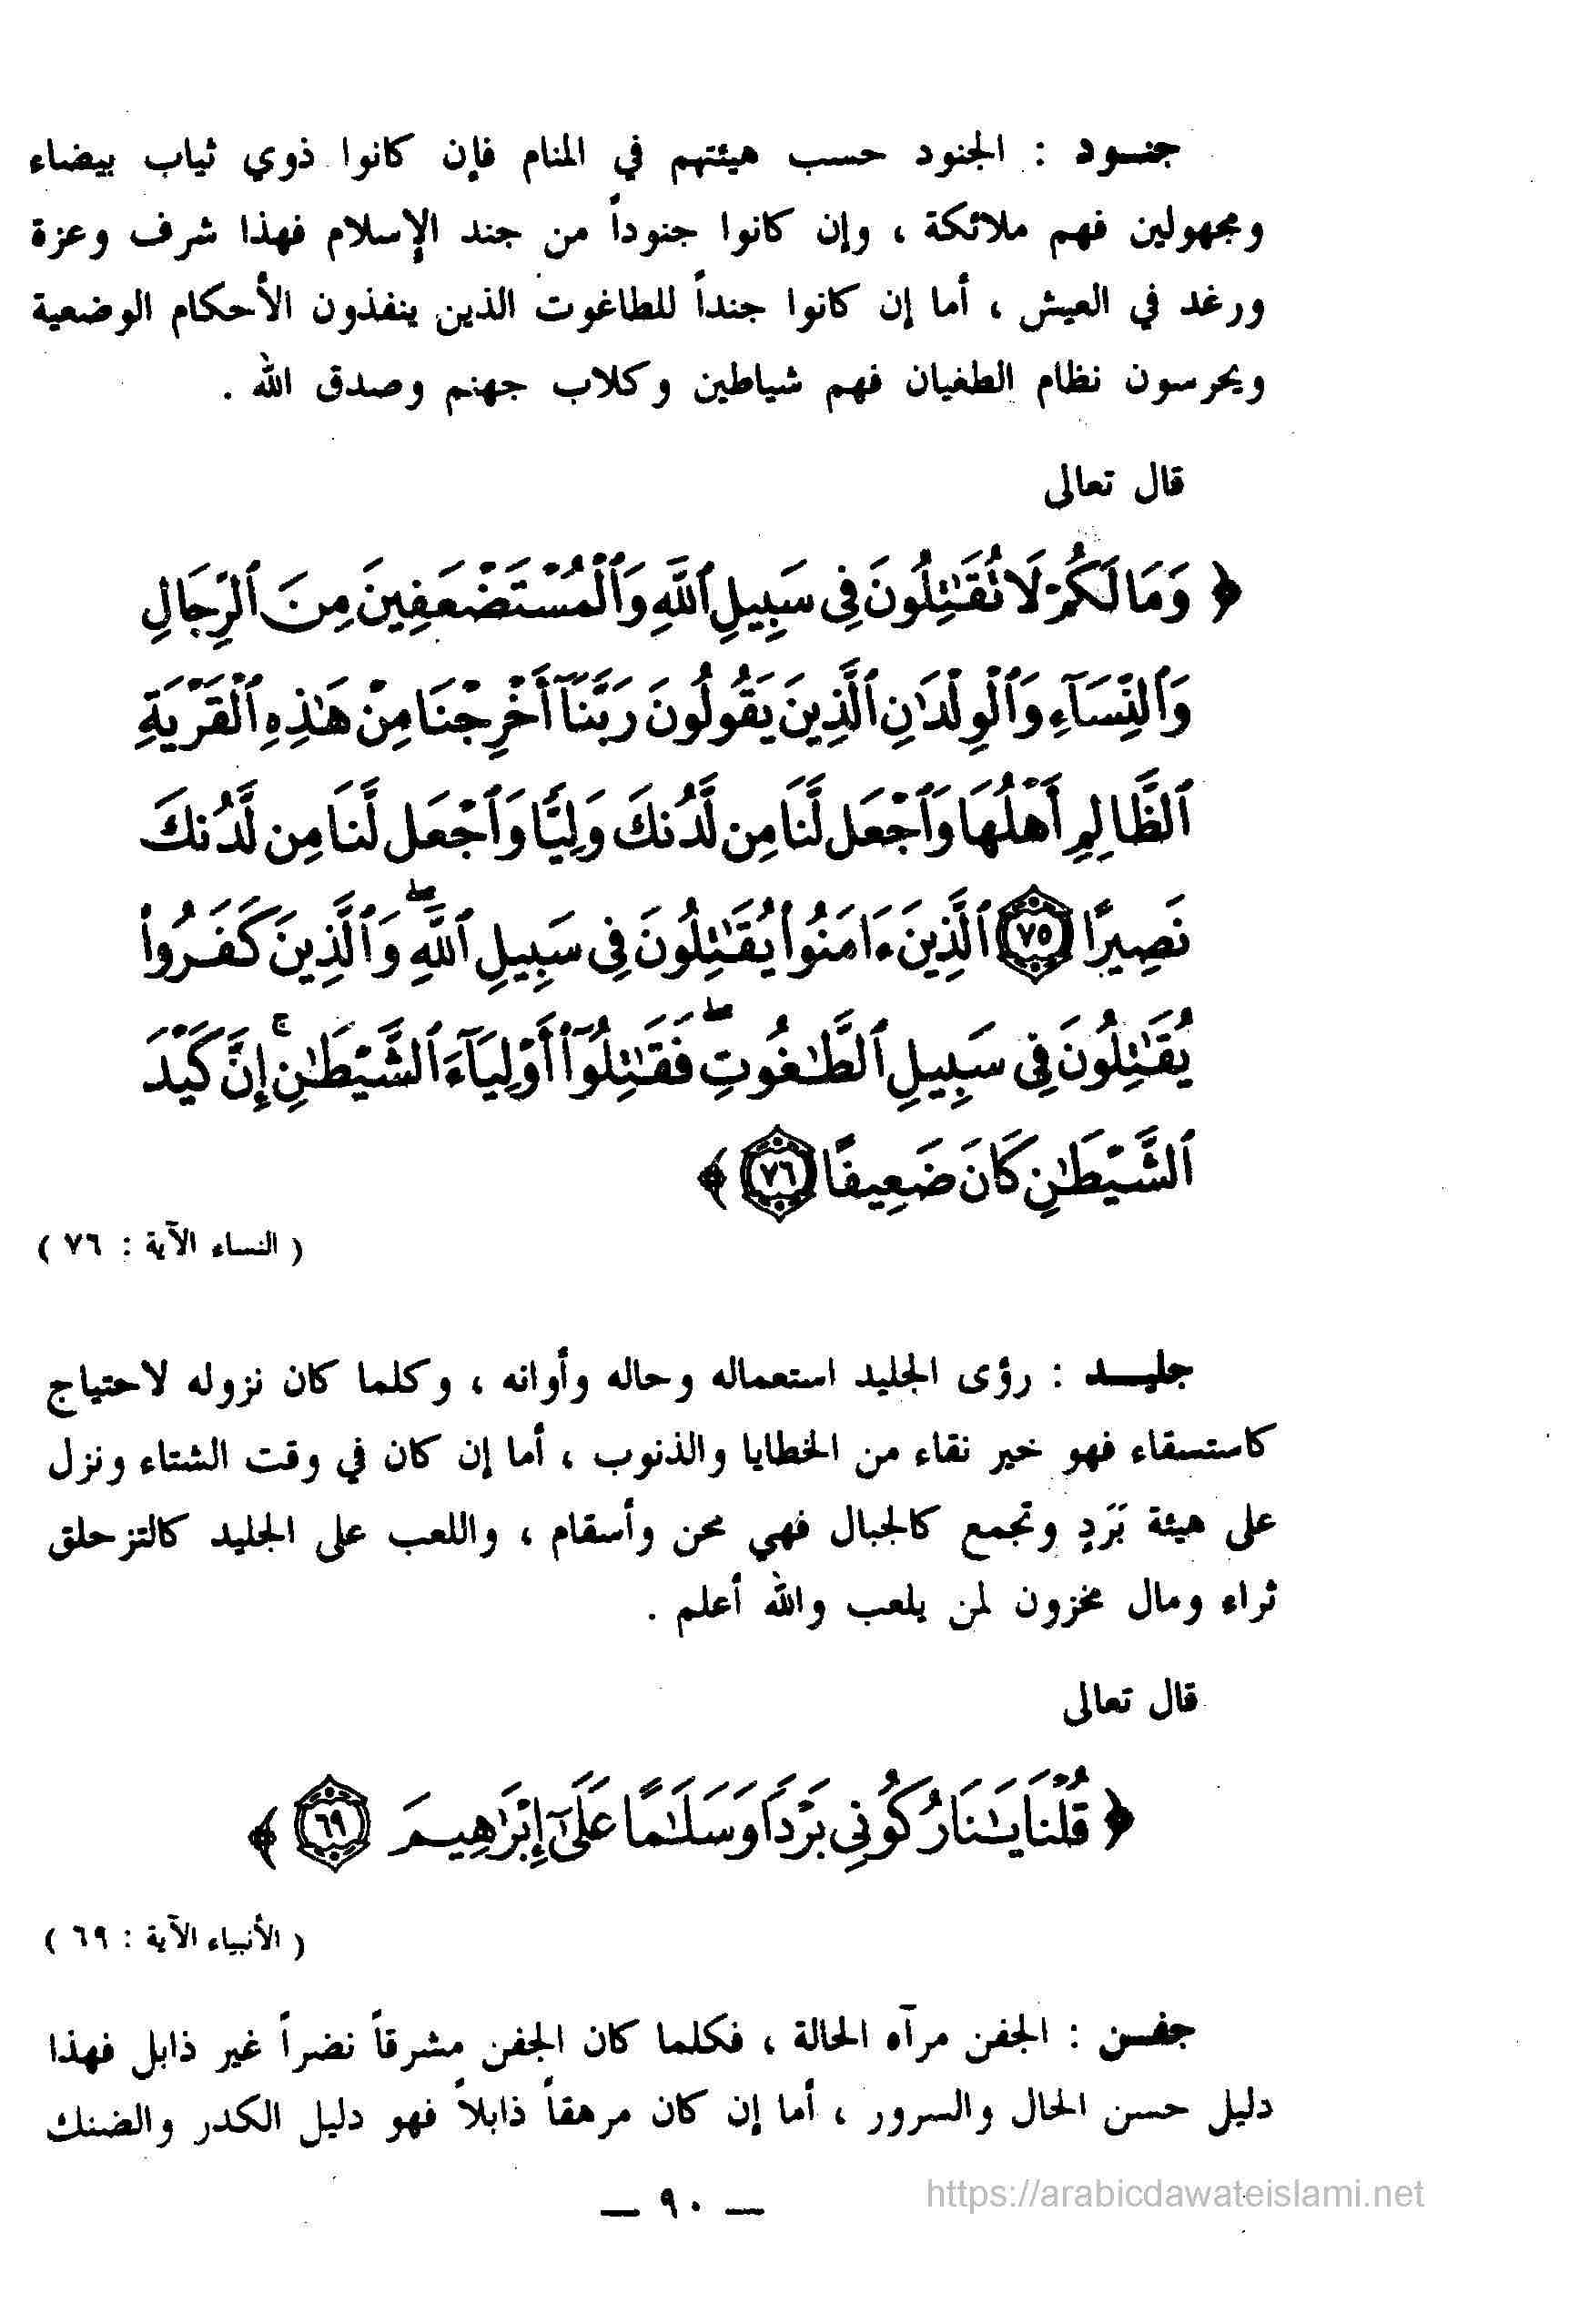 جنـود : الجنود حسب هيئتهم في المنام فإن كانوا ذوي ثياب بيضاء
ومجهولين فهم ملائكة ، وإن كانوا جنوداً من جند الإسلام فهذا شرف وعزة
ورغد في العيش ، أما إن كانوا جنداً للطاغوت الذين ينفذون الأحكام الوضعية
ويحرسون نظام الطغيان فهم شياطين وكلاب جهنم وصدق الله .
قال تعالى
﴿ وَمَا لَكُمْ لَا تُقَٰتِلُونَ فِى سَبِيلِ ٱللَّهِ وَٱلْمُسْتَضْعَفِينَ مِنَ ٱلرِّجَالِ
وَٱلنِّسَآءِ وَٱلْوِلْدَٰنِ ٱلَّذِينَ يَقُولُونَ رَبَّنَآ أَخْرِجْنَا مِنْ هَٰذِهِ ٱلْقَرْيَةِ
ٱلظَّالِمِ أَهْلُهَا وَٱجْعَل لَّنَا مِن لَّدُنكَ وَلِيًّا وَٱجْعَل لَّنَا مِن لَّدُنكَ
نَصِيرًا ٧٥ ٱلَّذِينَ ءَامَنُوا۟ يُقَٰتِلُونَ فِى سَبِيلِ ٱللَّهِ ۖ وَٱلَّذِينَ كَفَرُوا۟
يُقَٰتِلُونَ فِى سَبِيلِ ٱلطَّٰغُوتِ ۖ فَقَٰتِلُوٓا۟ أَوْلِيَآءَ ٱلشَّيْطَٰنِ ۚ إِنَّ كَيْدَ
ٱلشَّيْطَٰنِ كَانَ ضَعِيفًا ٧٦ ﴾
( النساء الآية : ٧٦ )
جليـد : رؤى الجليد استعماله وحاله وأوانه ، وكلما كان نزوله لاحتياج
كاستسقاء فهو خير نقاء من الخطايا والذنوب ، أما إن كان في وقت الشتاء ونزل
على هيئة بَرَدٍ وتجمع كالجبال فهي محن وأسقام ، واللعب على الجليد كالتزحلق
ثراء ومال مخزون لمن يلعب والله أعلم .
قال تعالى
﴿ قُلْنَا يَٰنَارُ كُونِى بَرْدًا وَسَلَٰمًا عَلَىٰٓ إِبْرَٰهِيمَ ٦٩ ﴾
( الأنبياء الآية : ٦٩ )
جفـن : الجفن مرآه الحالة ، فكلما كان الجفن مشرقاً نضراً غير ذابل فهذا
دليل حسن الحال والسرور ، أما إن كان مرهقاً ذابلاً فهو دليل الكدر والضنك
— ٩٠ —
https://arabicdawateislami.net